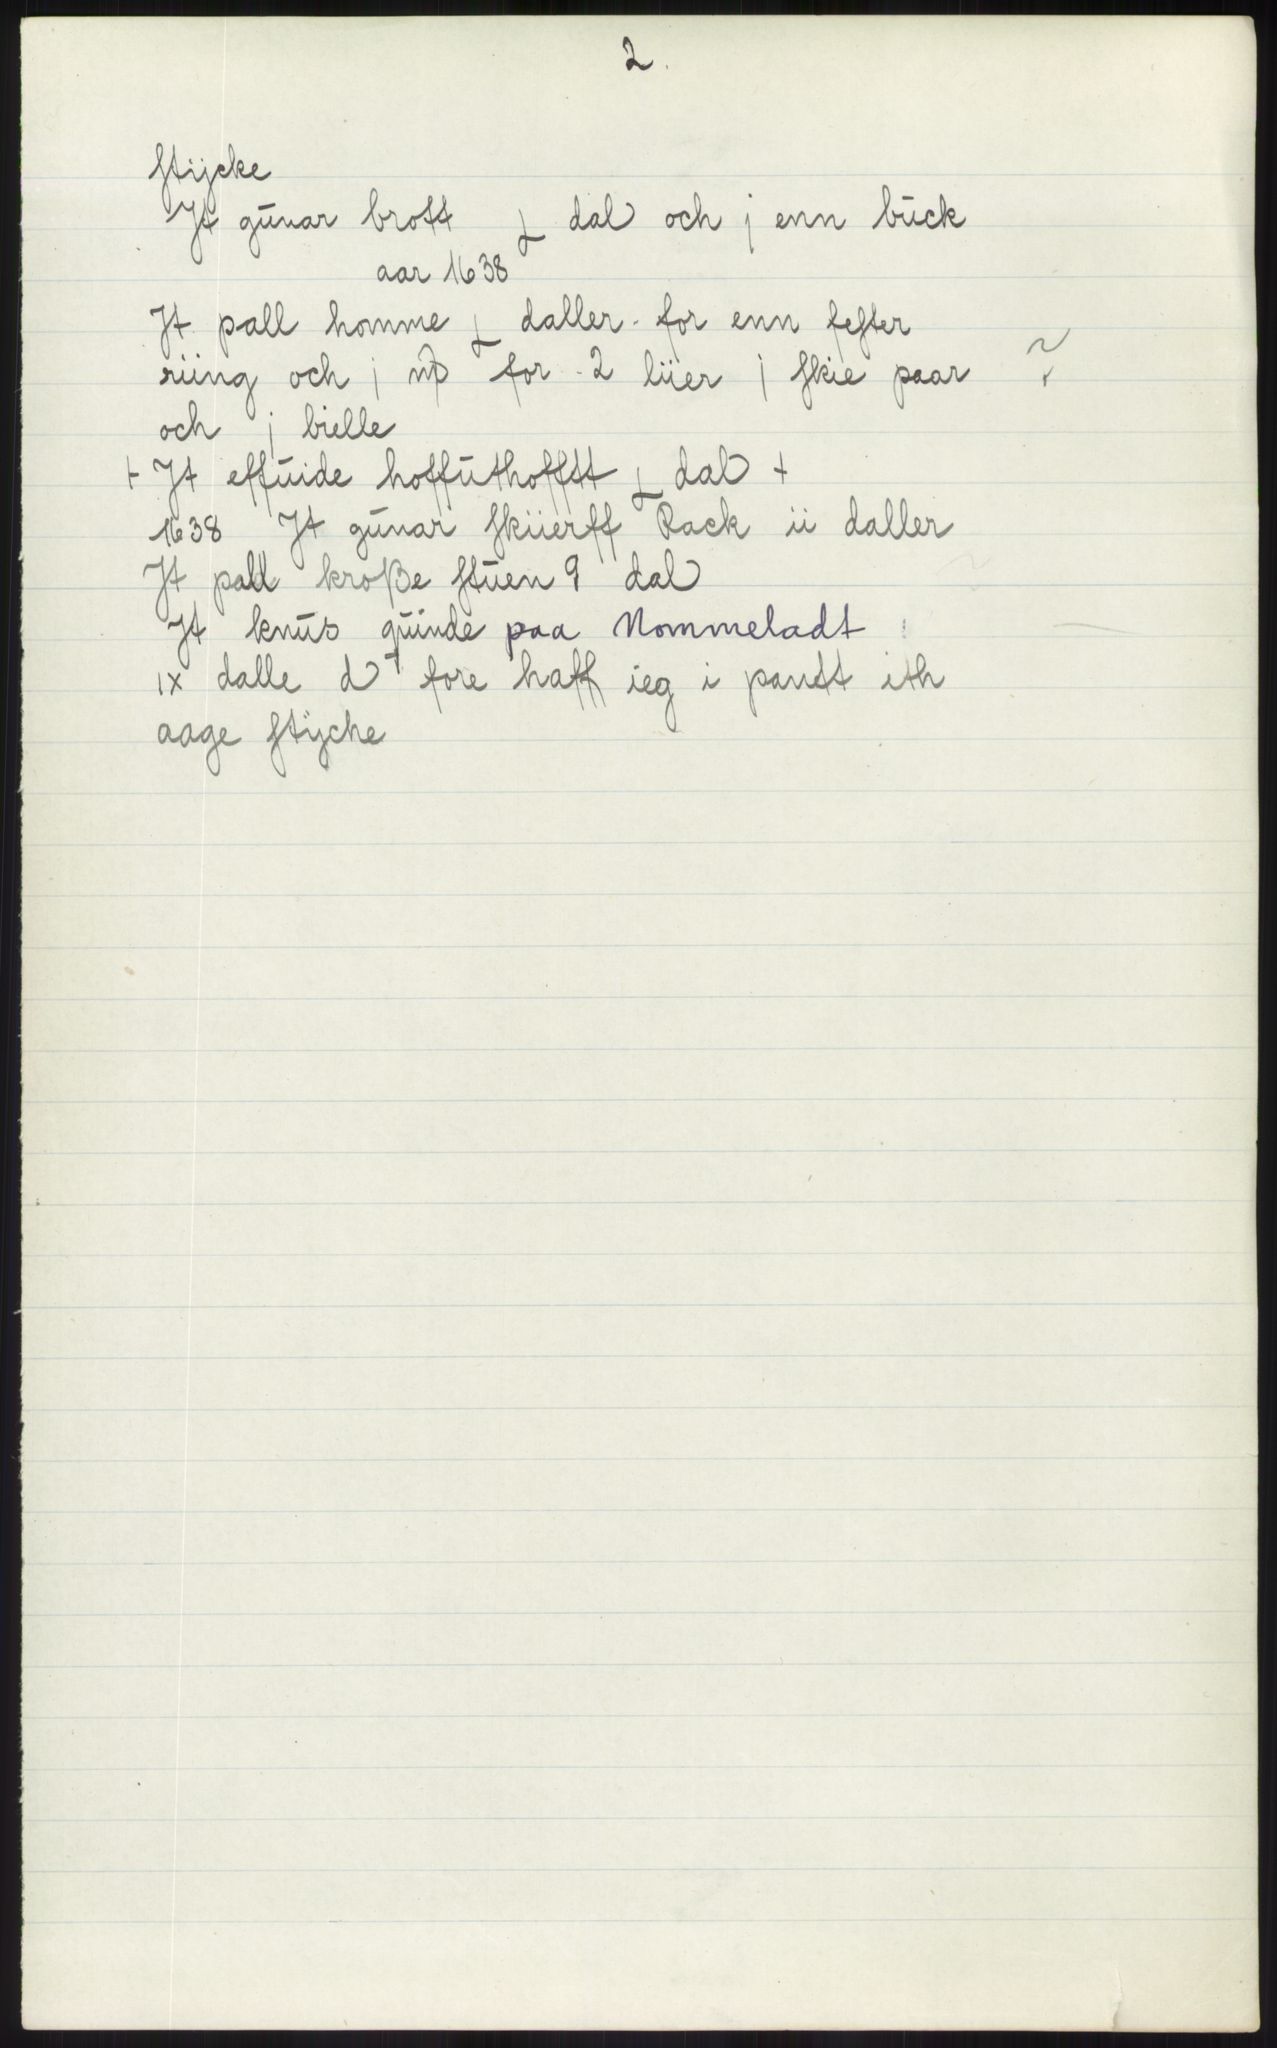 2.
stijcke
It gūnar brott ɟ dal och j enn būck
aar 1638
It pall homme ɟ daller. for enn fester
riing och j for 2 liier j skie paar ~
och j bielle
+ It effūide hoffūthofftt ɟ dal +
1638 It gūnar skiierff Rack ii daller
It pall kroße stūen 9 dal
It knūs qūinde paa Nommeladt
ix dalle d fore haff ieg i pantt ith
aage stijcke